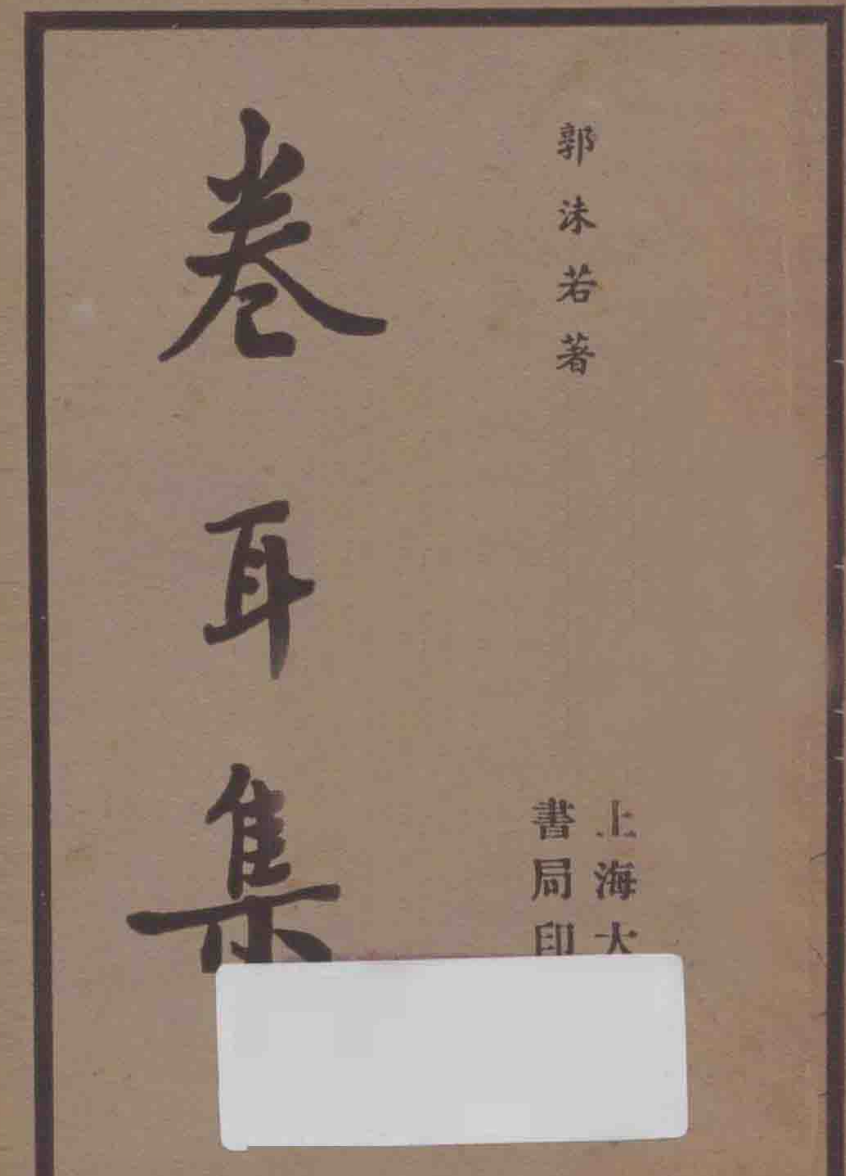 郭沫若著
卷耳集
上海大
書局印